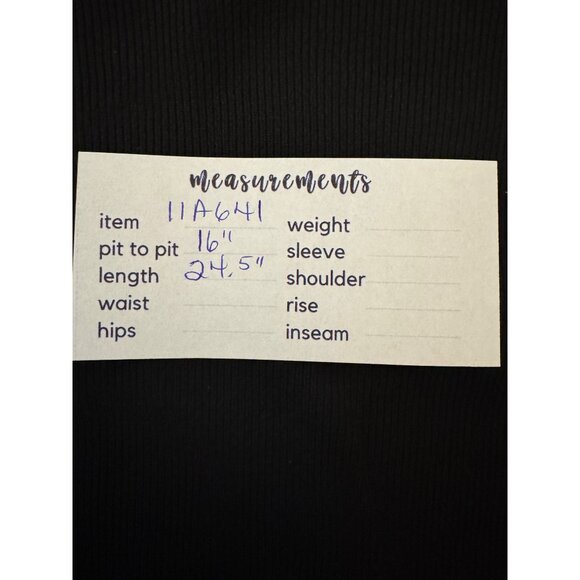 measurements
item 11A641
pit to pit 16"
length 24.5"
waist
hips
weight
sleeve
shoulder
rise
inseam